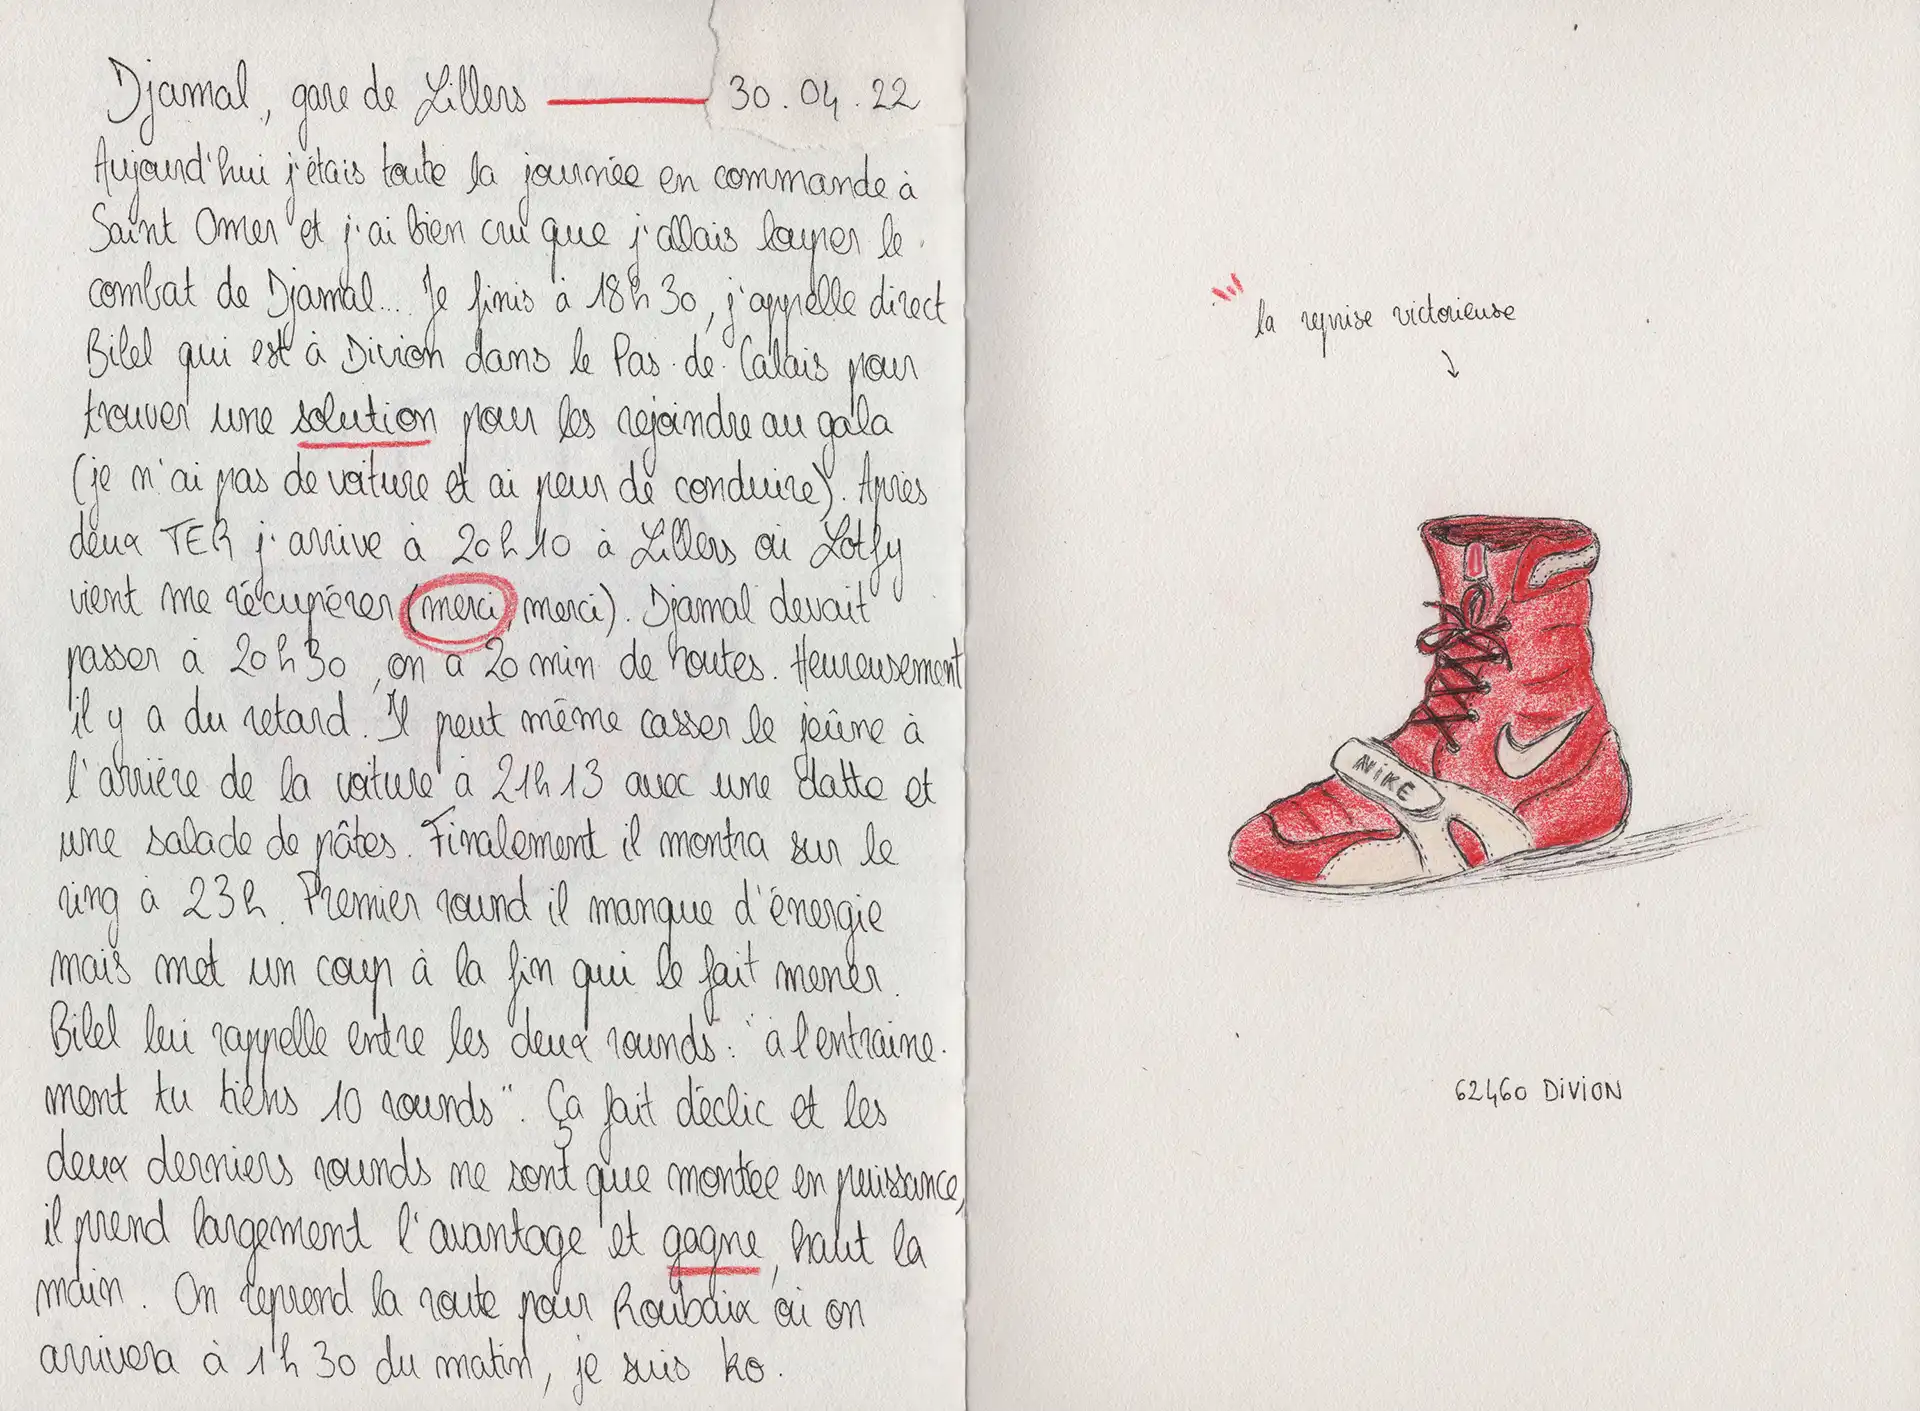 Djamal, gare de Lillers 30.04.22
Aujourd'hui j'étais toute la journée en commande à
Saint Omer et j'ai bien cru que j'allais louper le
combat de Djamal... Je finis à 18h30, j'appelle direct
Bilel qui est à Divion dans le Pas-de-Calais pour
trouver une solution pour les rejoindre au gala
(je n'ai pas de voiture et ai peur de conduire). Après
deux TER j'arrive à 20h10 à Lillers où Lotfy
vient me récupérer (merci merci). Djamal devait
passer à 20h30, on a 20 min de routes. Heureusement
il y a du retard. Il peut même casser le jeûne à
l'arrière de la voiture à 21h13 avec une datte et
une salade de pâtes. Finalement il montra sur le
ring à 23h. Premier round il manque d'énergie
mais met un coup à la fin qui le fait mener.
Bilel lui rappelle entre les deux rounds : "à l'entraine-
ment tu tiens 10 rounds". Ça fait déclic et les
deux derniers rounds ne sont que montée en puissance,
il prend largement l'avantage et gagne, haut la
main. On reprend la route pour Roubaix où on
arrivera à 1h30 du matin, je suis ko.
la reprise victorieuse
NIKE
62460 DIVION